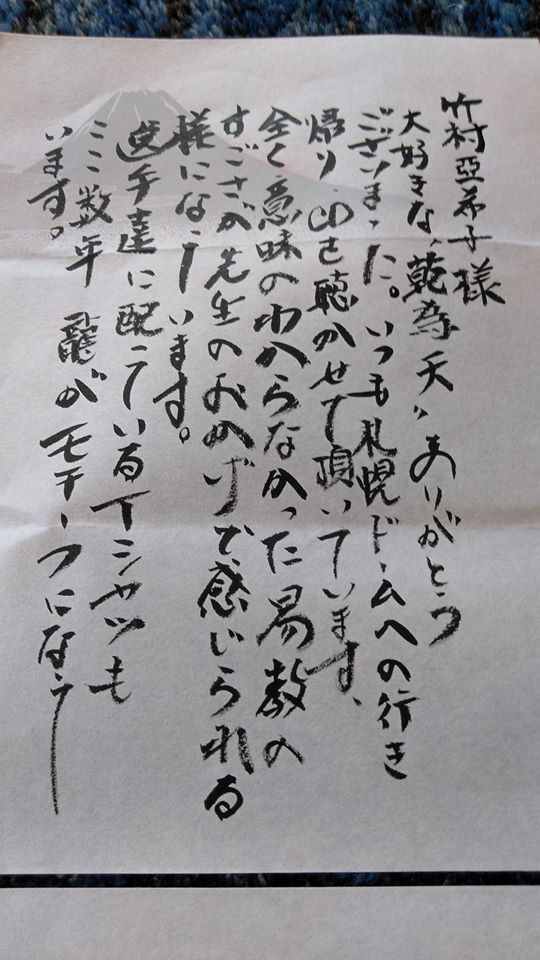 竹村亞希子様
大好きな、"乾為天"ありがとう
ございまった。いつも札幌ドームへの行き
帰り、CDを聴かせて頂いています、
全く意味のわからなかった易教の
すごさが先生のおかげで感じられる
様になっています。
選手達に配っているTシャツも
ここ数年 龍がモチーフになって
います。